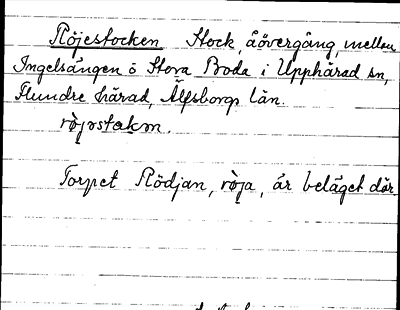 Röjestocken Stock, åövergång, mellan
Ingelsängen ö Stora Boda i Upphärad sn,
Flundre härad, Älfsborgs län.
Torpet Rödjan, röja, är beläget där.